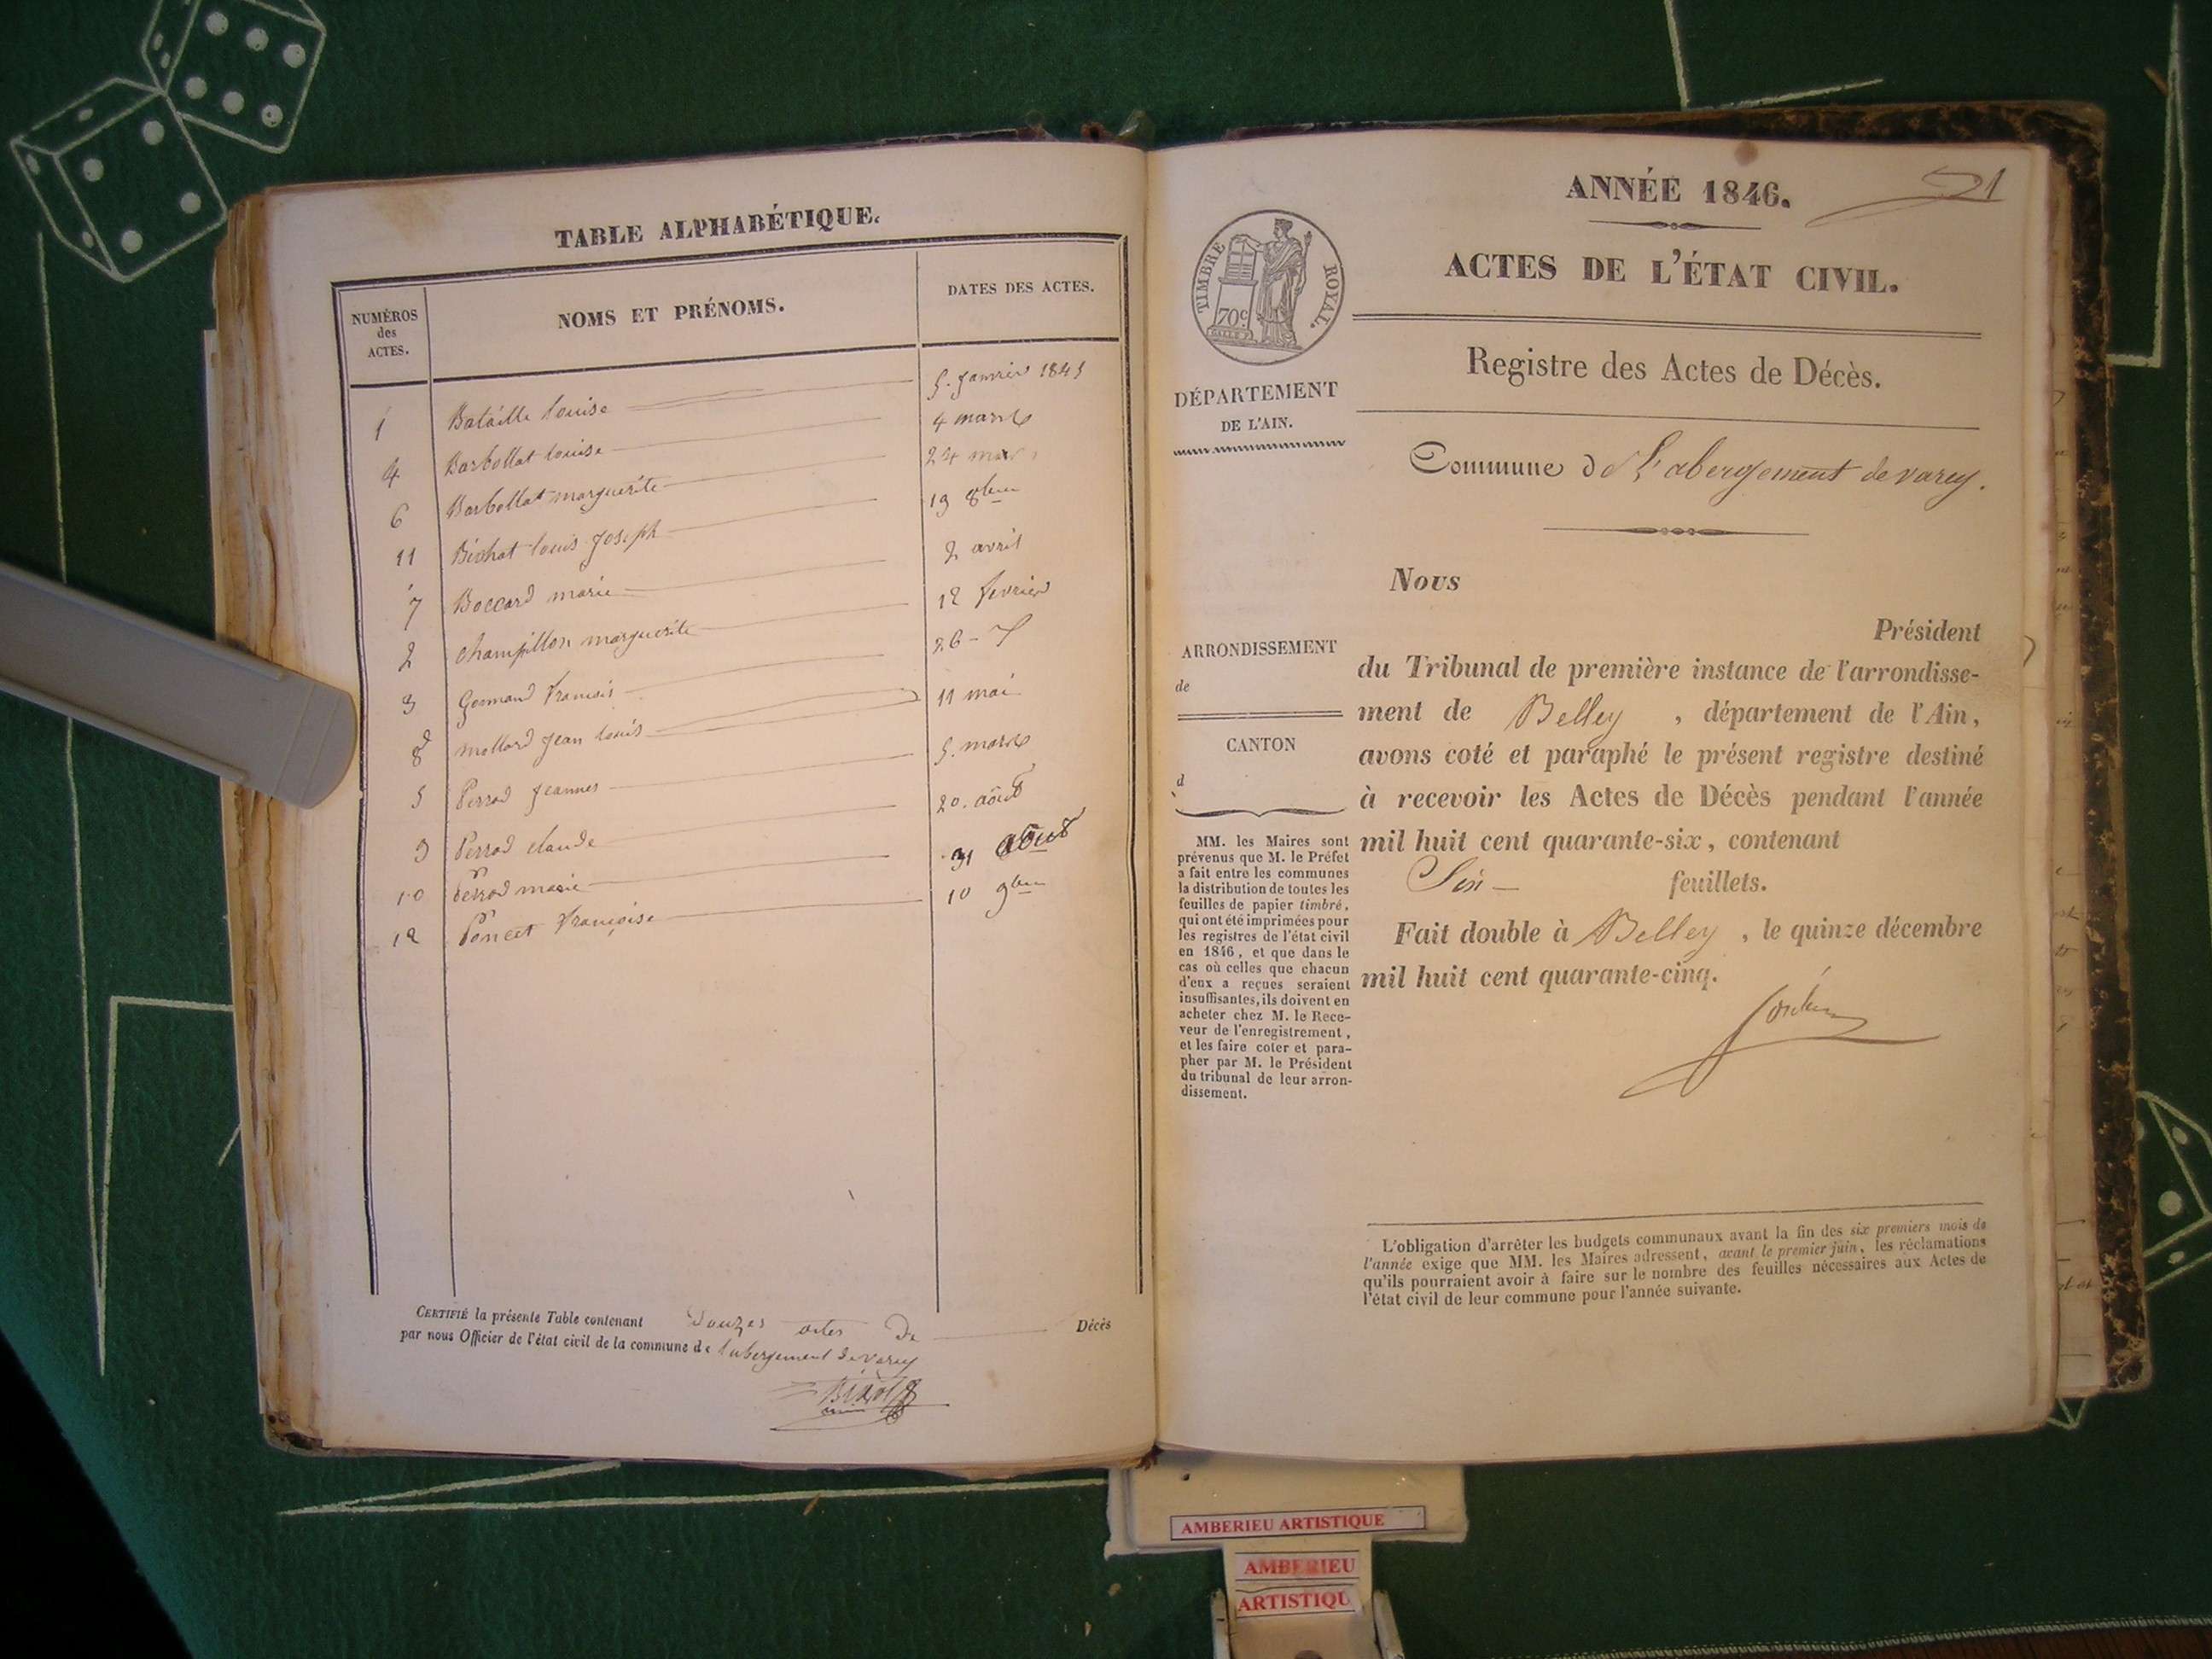 TABLE ALPHABÉTIQUE.
NUMÉROS
des
ACTES.
NOMS ET PRÉNOMS.
DATES DES ACTES.
1 Bataille louise 5. janvier 1845
4 Barbollat louise 4 mars
6 Barbollat marguerite 24 mars
11 Bichat louis joseph 19 8bre
7 Boccard marie 2 avril
2 Champillon marguerite 12 fevrier
3 Germand francois 26 -
8 mollard jean louis 11 mai
5 Perrod jeanne 5. mars
9 Perrod claude 20. août
10 Perrod marie 31 août
12 Poncet françoise 10 9bre
CERTIFIÉ la présente Table contenant Douzes actes De Décès
par nous Officier de l'état civil de la commune de l'abergement de varey
21
ANNÉE 1846.
ACTES DE L'ÉTAT CIVIL.
TIMBRE ROYAL.
70c
Registre des Actes de Décès.
DÉPARTEMENT
DE L'AIN.
Commune de L'abergement de varey.
Nous
Président
du Tribunal de première instance de l'arrondisse-
ment de Belley, département de l'Ain,
avons coté et paraphé le présent registre destiné
à recevoir les Actes de Décès pendant l'année
mil huit cent quarante-six, contenant
Six feuillets.
Fait double à Belley, le quinze décembre
mil huit cent quarante-cinq.
ARRONDISSEMENT
de
CANTON
d
MM. les Maires sont
prévenus que M. le Préfet
a fait entre les communes
la distribution de toutes les
feuilles de papier timbré,
qui ont été imprimées pour
les registres de l'état civil
en 1846, et que dans le
cas où celles que chacun
d'eux a reçues seraient
insuffisantes, ils doivent en
acheter chez M. le Rece-
veur de l'enregistrement,
et les faire coter et para-
pher par M. le Président
du tribunal de leur arron-
dissement.
L'obligation d'arrêter les budgets communaux avant la fin des six premiers mois de
l'année exige que MM. les Maires adressent, avant le premier juin, les réclamations
qu'ils pourraient avoir à faire sur le nombre des feuilles nécessaires aux Actes de
l'état civil de leur commune pour l'année suivante.
AMBERIEU ARTISTIQUE
AMBERIEU
ARTISTIQU